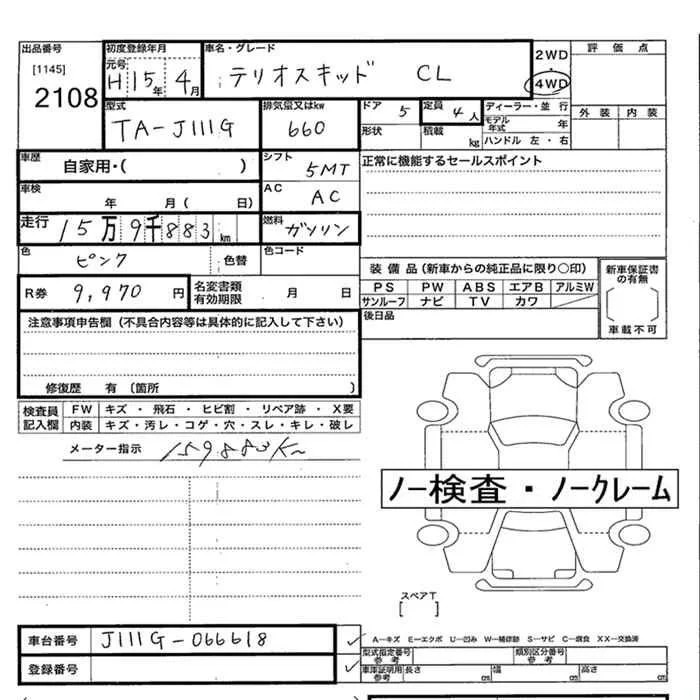 出品番号 初度登録年月 車名・グレード 2WD 評価点
[1145] 元号 H15年4月 テリオスキッド CL ・
2108 4WD
型式 排気量又はkw ドア 5 定員 4人 ディーラー・並行 外装 内装
TA-J111G 660 形状 積載 kg モデル年式 年
ハンドル 左・右
車歴 自家用・( ) シフト 5MT 正常に機能するセールスポイント
車検 年 月( 日) AC AC
走行 15万9千883km 燃料 ガソリン
色 ピンク 色替 色コード
装備品(新車からの純正品に限り〇印) 新車保証書の有無
R券 9,970円 名変書類有効期限 月 日 PS PW ABS エアB アルミW
サンルーフ ナビ TV カワ
注意事項申告欄(不具合内容等は具体的に記入して下さい) 後日品 車載不可
修復歴 有 (箇所 )
検査員記入欄 FW キズ ・ 飛石 ・ ヒビ割 ・ リペア跡 ・ X要
内装 キズ・汚レ・コゲ・穴・スレ・キレ・破レ
メーター指示 159883K
ノー検査・ノークレーム
スペアT
[ ]
車台番号 J111G-066618 A−キズ E−エクボ U−凹み W−補修跡 S−サビ C−腐食 XX−交換済
型式指定番号 参考 類別区分番号 参考
登録番号 車庫証明用 参考 長さ cm 幅 cm 高さ cm